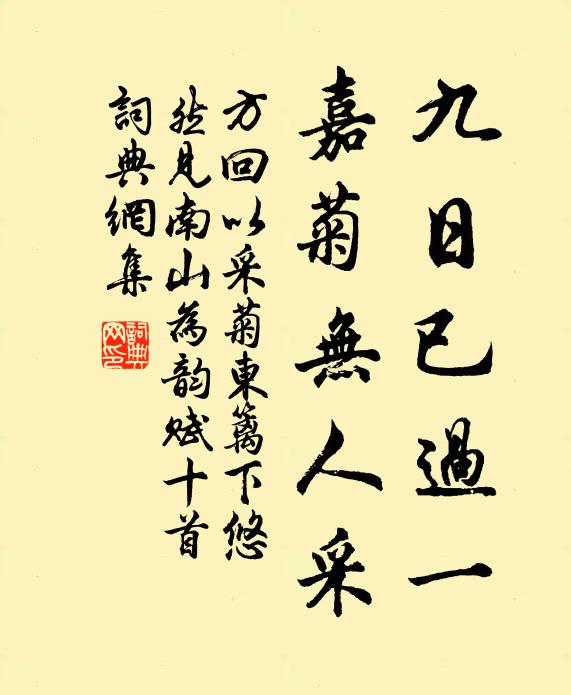 九日已過一
嘉菊無人采
方回以采菊東籬下悠
然見南山為韵赋十首
詞典網集
詞典
网印